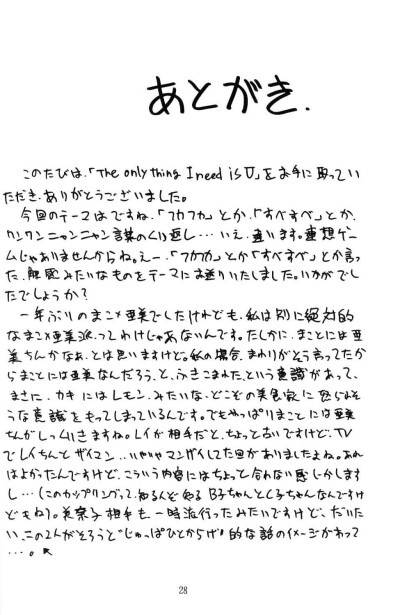 あとがき.
このたびは、「The only thing I need is U」をお手に取ってい
ただき、ありがとうございました。
今回のテーマはですね、「フカフカ」とか、「すべすべ」とか、
ワンワンニャンニャン言葉のくり返し…いえ、違います。連想ゲー
ムじゃありませんからね。えー、「フカフカ」とか「すべすべ」とか言っ
た、触感みたいなものをテーマにお送りいたしました。いかがでし
たでしょうか?
一年ぶりのまこ×亜美でしたけれども、私は別に絶対的
なまこ×亜美派ってわけじゃあないんです。たしかに、まことには亜
美ちんかなあ、とは思いますけど。私の場合、まわりがそう言ってたか
らまことには亜美なんだろう、と、ふきこまれたという意識があって、
まさに、カキにはレモン、みたいな、どこその美食家に怒られそ
うな意識をもってしまっているんです。でもやっぱりまことには亜美
ちんがしっくりきますね。レイが相手だと、ちょっと古いですけど、TV
でレイちんとザイコン…いやいやマンザイしてた回がありましたよね。あれ
はよかったんですけど、こういう内容にはちょっと合わない感じがします
し…(このカップリングって、知る人ぞ知るB子ちゃんとC子ちゃんなんですけ
どもね)。美奈子相手も、一時流行ったみたいですけど、だいた
い、この2人がそろうと"じゅっぱひとからげ"的な話のイメージがあって
…。
28